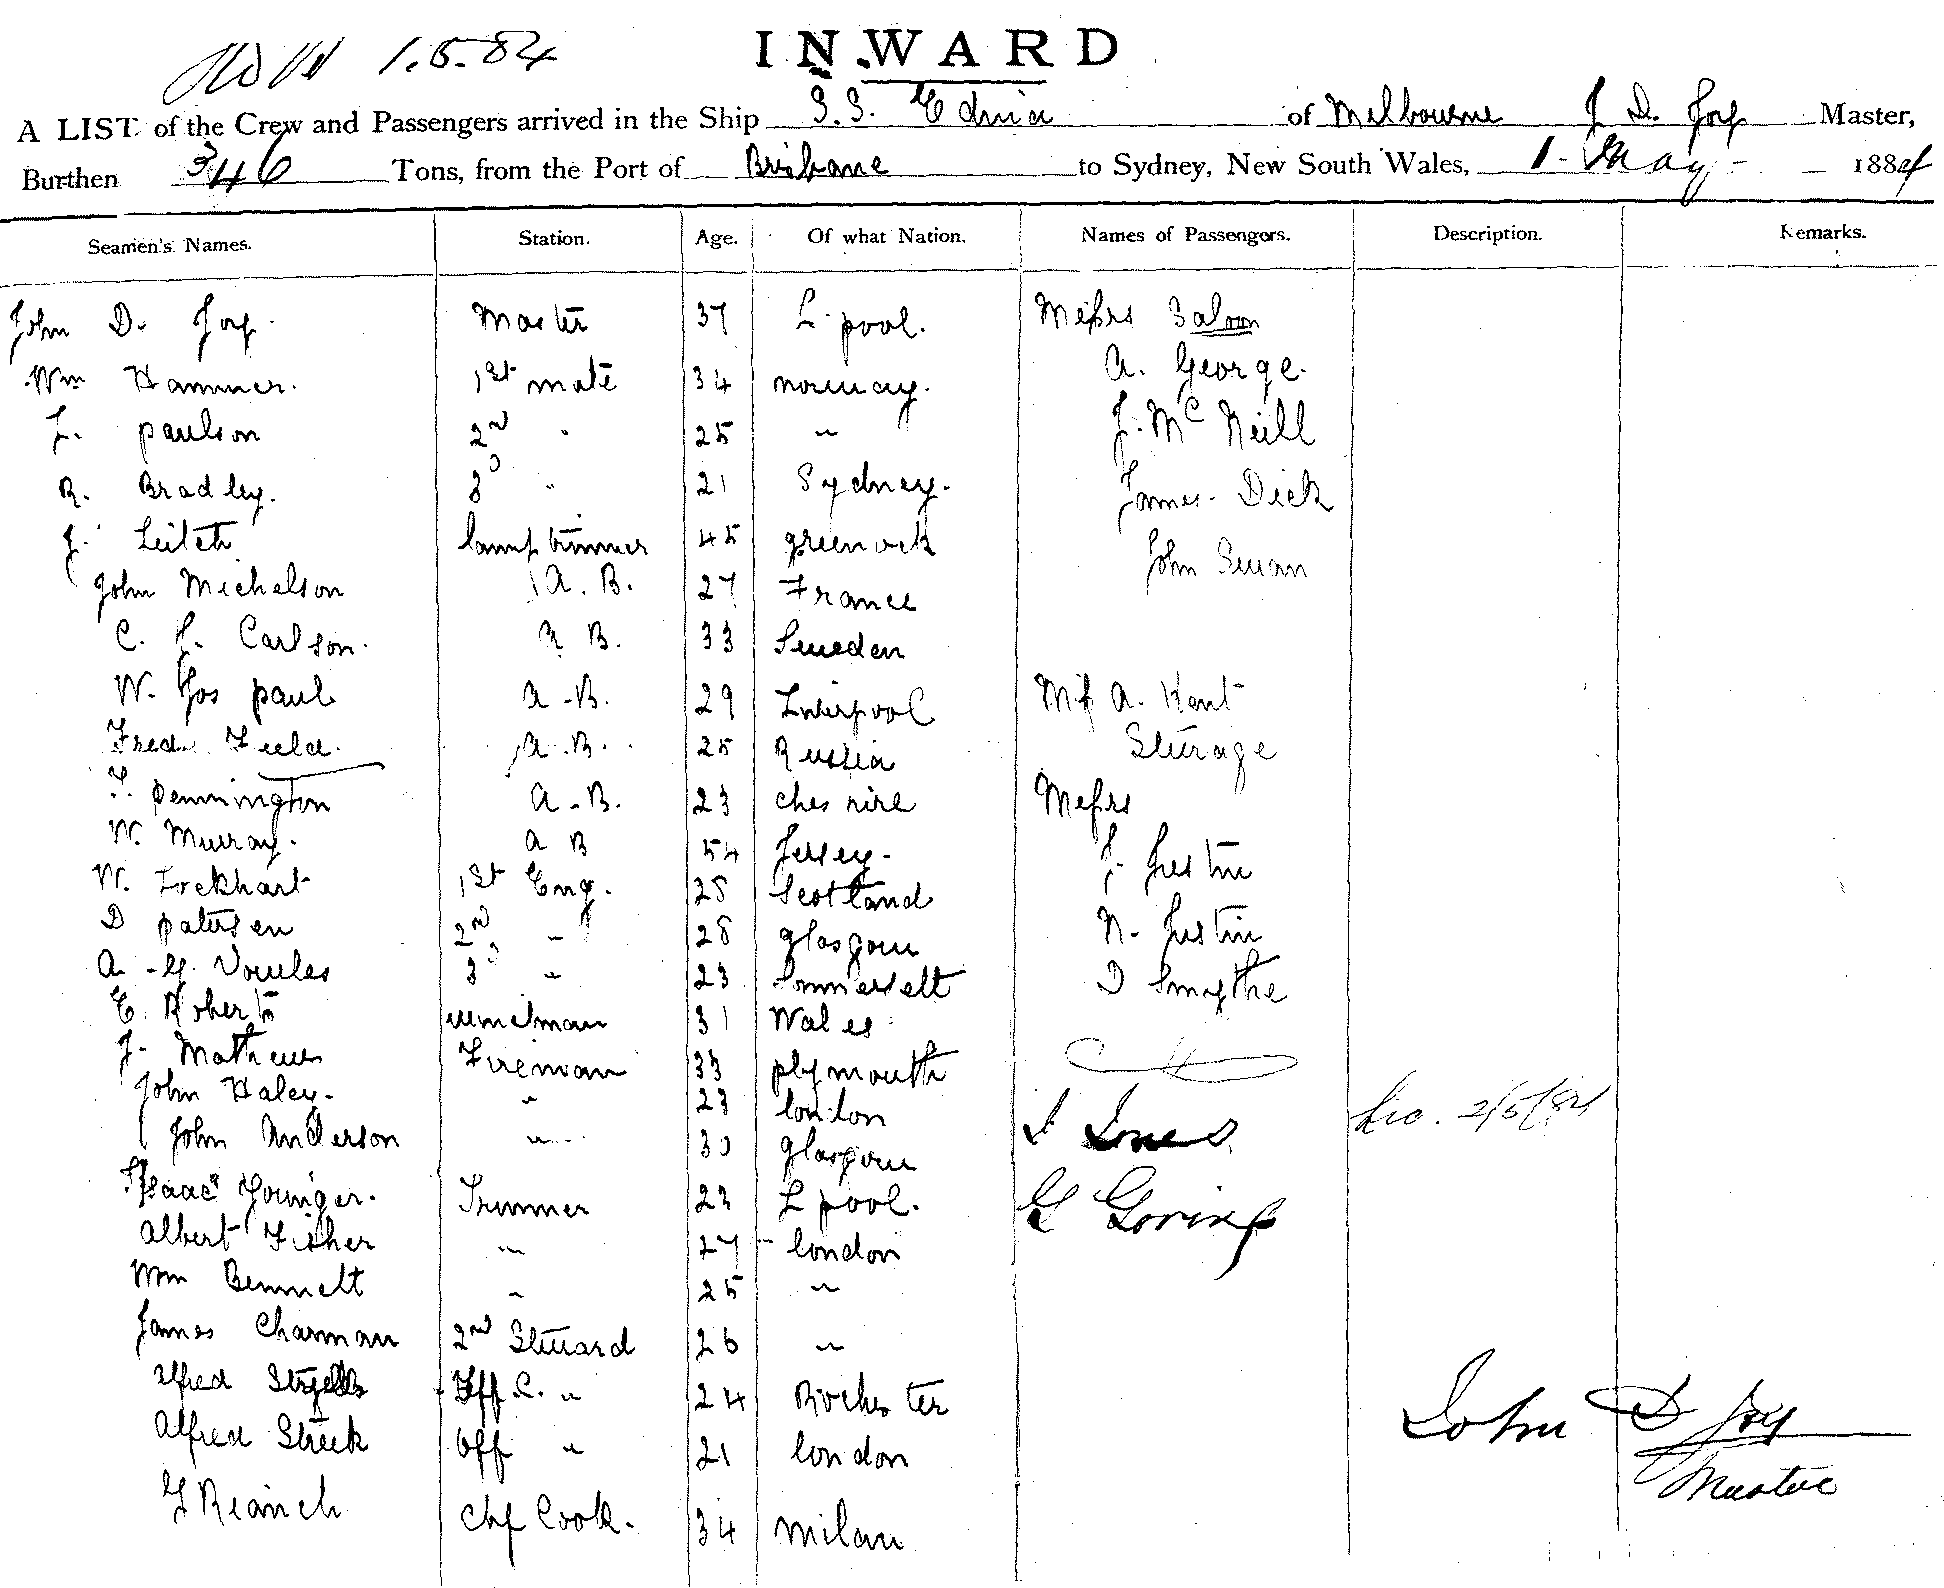 1.5.84
INWARD
A LIST of the Crew and Passengers arrived in the Ship S.S. Edina of Melbourne J D. Joy Master,
Burthen 346 Tons, from the Port of Brisbane to Sydney, New South Wales, 1 - May - 1884
Seamen's Names. Station. Age. Of what Nation. Names of Passengers. Description. Remarks.
John D. Joy. Master 37 L.pool. Messrs Saloon
Wm Hammer. 1st mate 34 norway. A. George.
L. paulson 2nd " 25 " J. Mc Neill
R. Bradley. 3d " 21 Sydney. James Dick
J. Leitch lamp trimmer 45 greenock John Swan
John Michelson A. B. 27 France
C. F. Carlson. A B. 33 Sweden
W. Jos paul A. B. 29 Liverpool Miss A. Kent
Fred Field. A. B. 25 Russia Sturage
T. pennington A. B. 23 cheshire Messrs
W. Murray. A B 54 Jersey. J. Justin
W. Lockhart 1st Eng. 28 Scotland
D patersen 2nd " 28 glasgow N. Justin
A. G. Vowles 3d " 23 Sommersett D Smythe
E. Roberts 31 Wales
J. Mathews Fireman 33 plymouth
John Haley. " 23 london
John Anderson " 30 glasgow J Jones 2/5/84
Isaac Younger. Trimmer 23 L pool. G Goring
Albert Fisher " 27 london
Wm Bennett " 25 "
James Charman 2nd Steward 26 "
Alfred " 24 Rochester John D Joy
Alfred Streek Off " 21 london Master
Chf Cook. 34 Milan